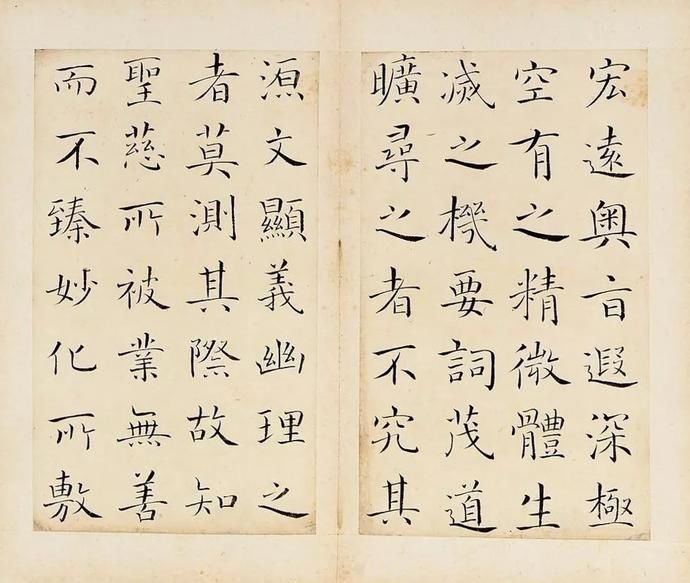 宏遠奧旨遐深極
空有之精微體生
滅之機要詞茂道
曠尋之者不究其
源文顯義幽理之
者莫測其際故知
聖慈所被業無善
而不臻妙化所敷